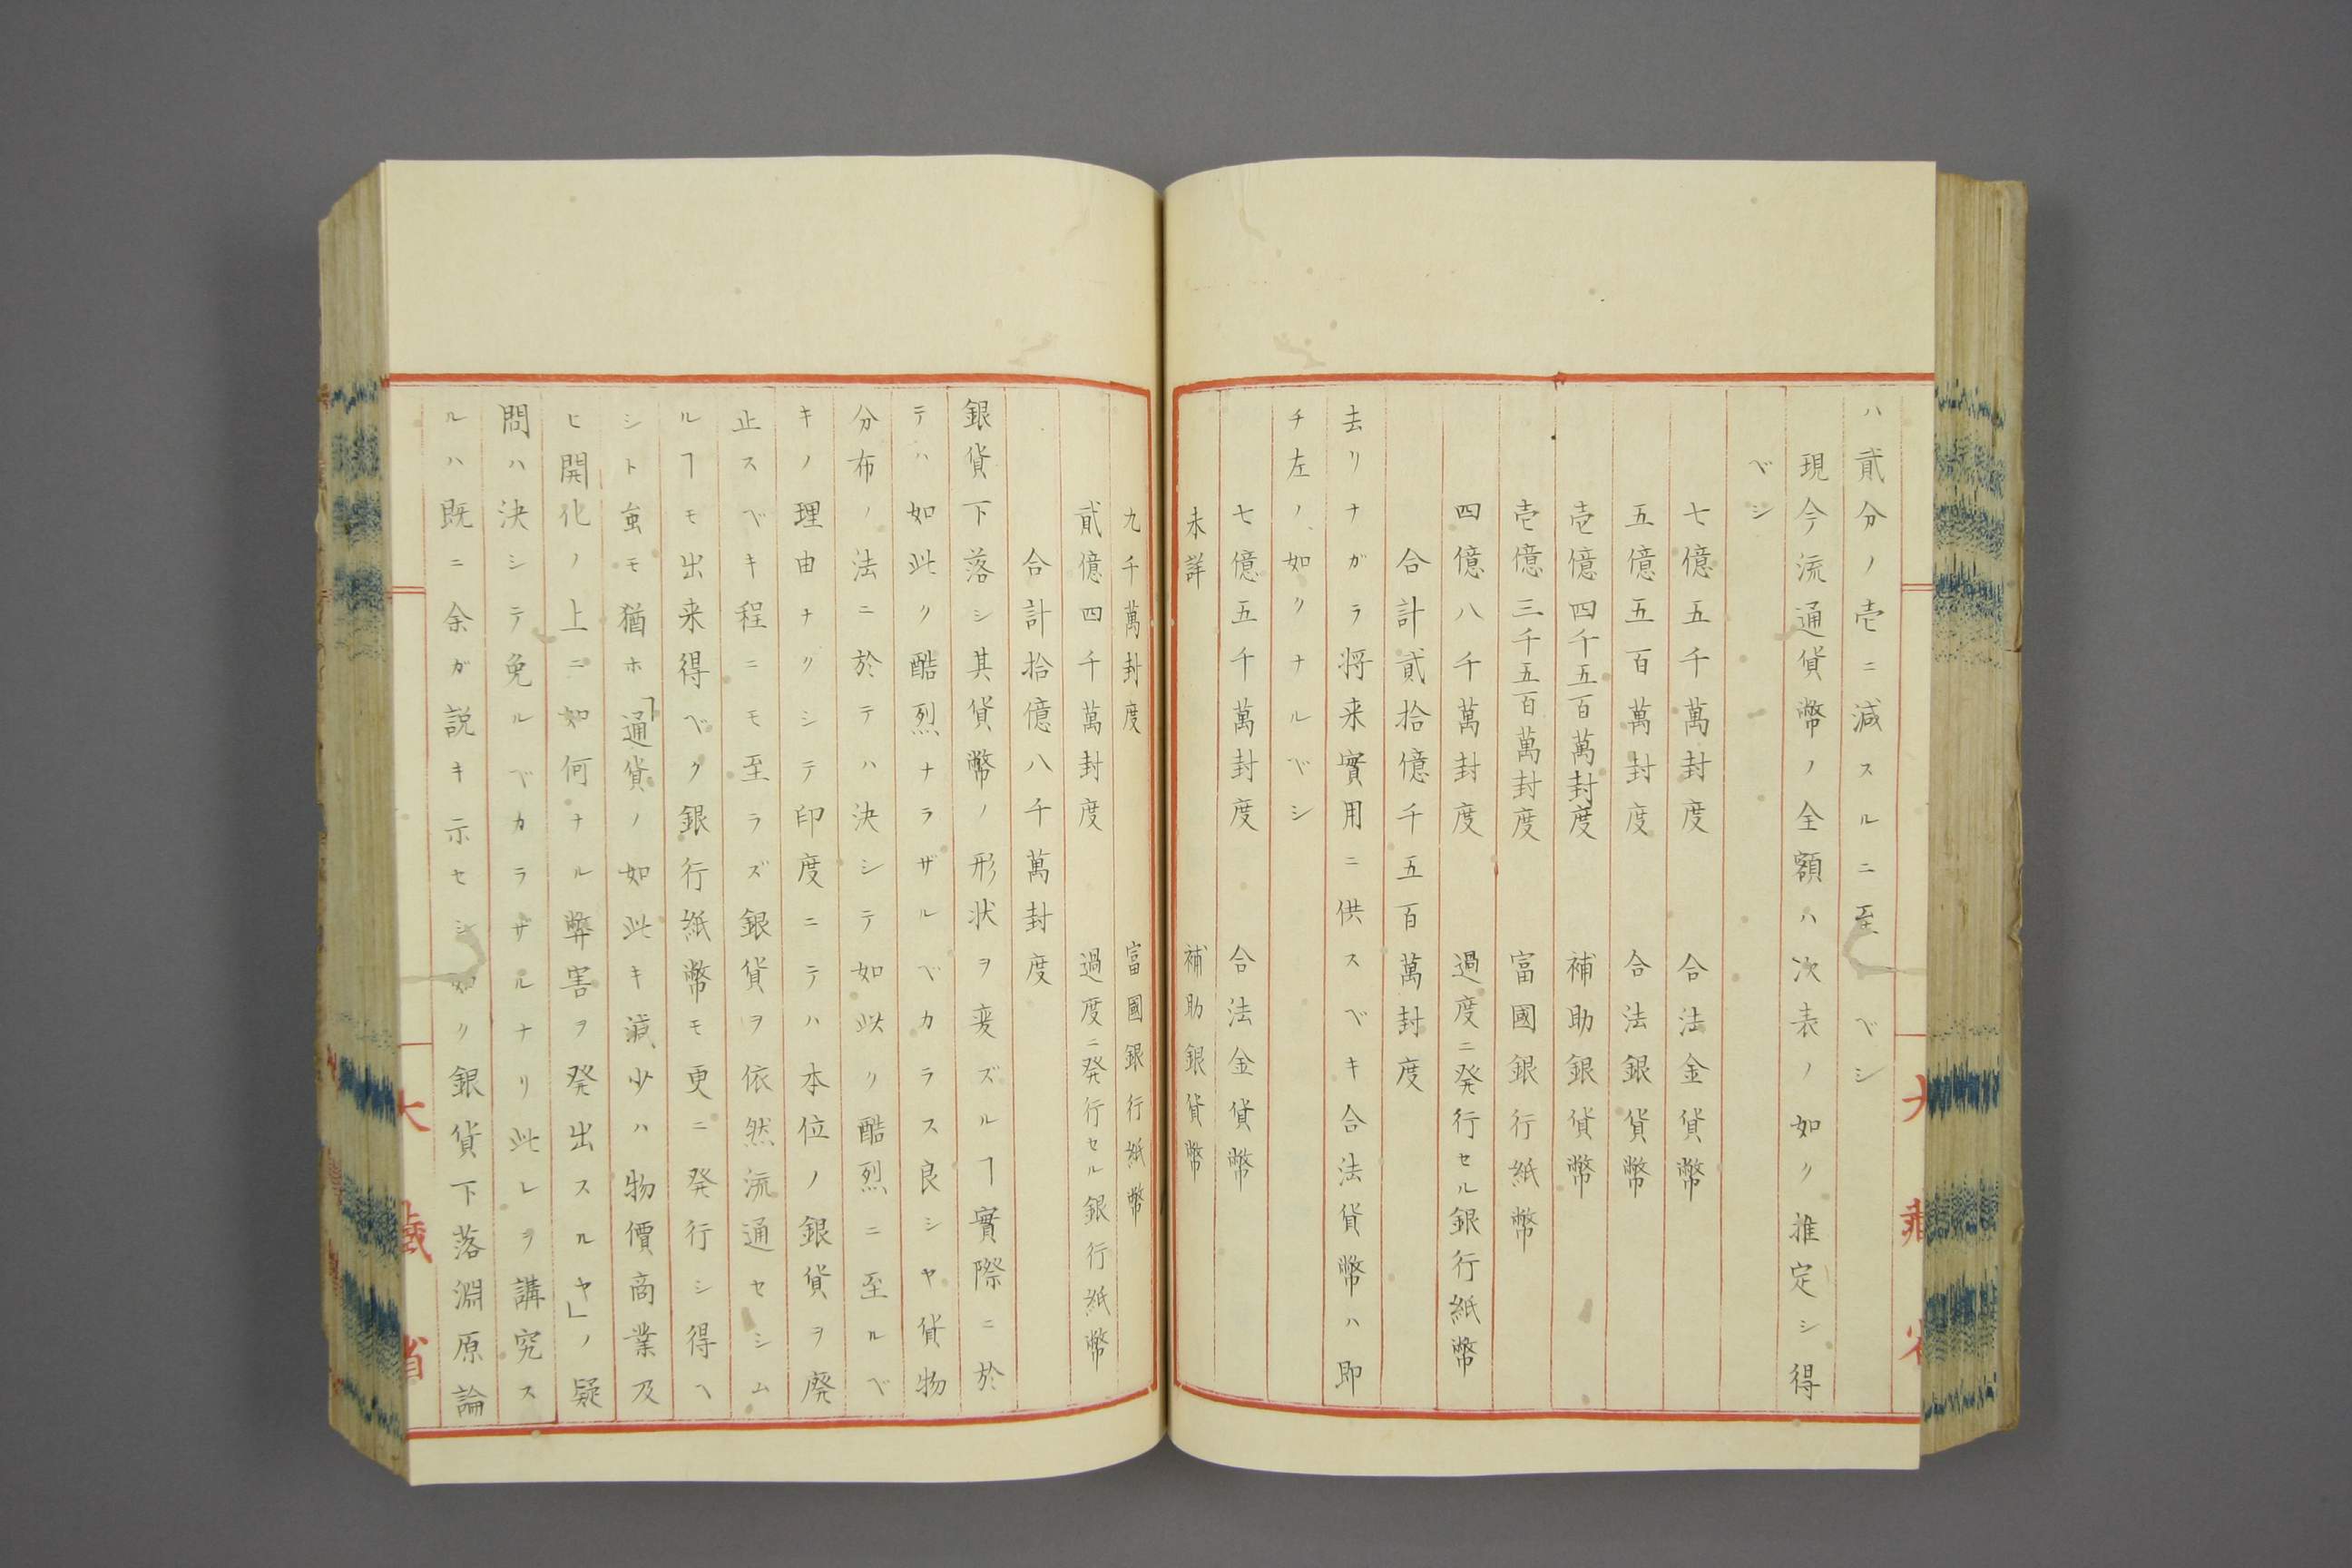 ハ貳分ノ壱ニ減スルニ至ルベシ
現今流通貨幣ノ全額ハ次表ノ如ク推定シ得
ベシ
七億五千萬封度　合法金貨幣
五億五百萬封度　合法銀貨幣
壱億四千五百萬封度　補助銀貨幣
壱億三千五百萬封度　富國銀行紙幣
四億八千萬封度　過度ニ発行セル銀行紙幣
合計貳拾億千五百萬封度
去リナガラ将来實用ニ供スベキ合法貨幣ハ即
チ左ノ如クナルベシ
七億五千萬封度　合法金貨幣
未詳　補助銀貨幣
九千萬封度　富國銀行紙幣
貳億四千萬封度　過度ニ発行セル銀行紙幣
合計拾億八千萬封度
銀貨下落シ其貨幣ノ形状ヲ変ズルヿ實際ニ於
テハ如此ク酷烈ナラザルベカラス良シヤ貨物
分布ノ法ニ於テハ決シテ如此ク酷烈ニ至ルベ
キノ理由ナクシテ印度ニテハ本位ノ銀貨ヲ廃
止スベキ程ニモ至ラズ銀貨ヲ依然流通セシム
ルヿモ出来得ベク銀行紙幣モ更ニ発行シ得ヘ
シト虽モ猶ホ「通貨ノ如此キ減少ハ物價商業及
ヒ開化ノ上ニ如何ナル弊害ヲ発出スルヤ」ノ疑
問ハ決シテ免ルベカラザルナリ此レヲ講究ス
ルハ既ニ余ガ説キ示セシ如ク銀貨下落淵原論
大藏省